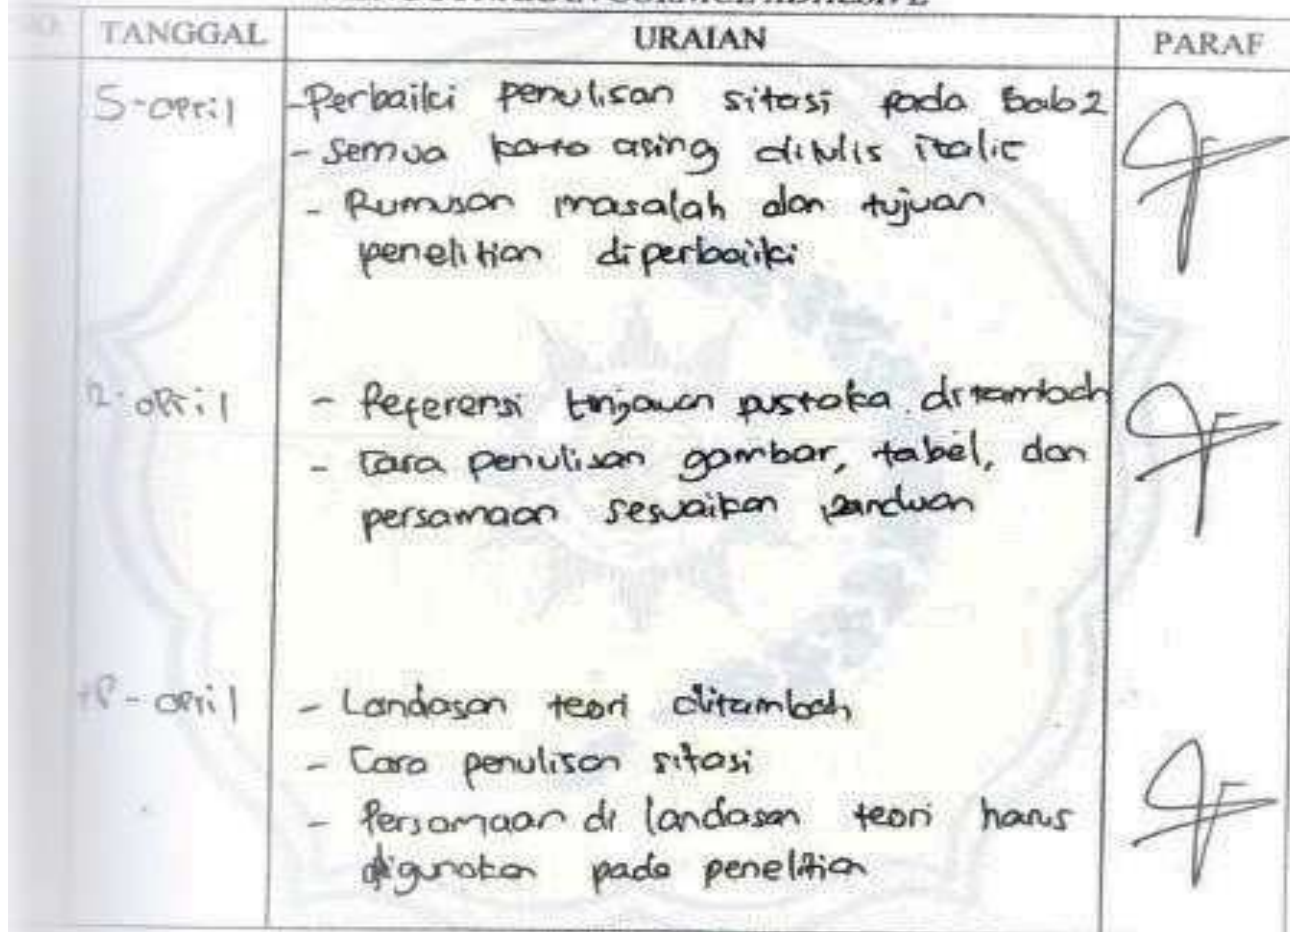 CORNICE ADHESIVE
TANGGAL URAIAN PARAF
5-April -Perbaiki penulisan sitasi pada Bab 2
- Semua kata asing ditulis italic
- Rumusan masalah dan tujuan
penelitian diperbaiki
April - Referensi tinjauan pustaka ditambah
- Cara penulisan gambar, tabel, dan
persamaan sesuaikan panduan
April - Landasan teori ditambah
- Cara penulisan sitasi
- Persamaan di landasan teori harus
digunakan pada penelitian